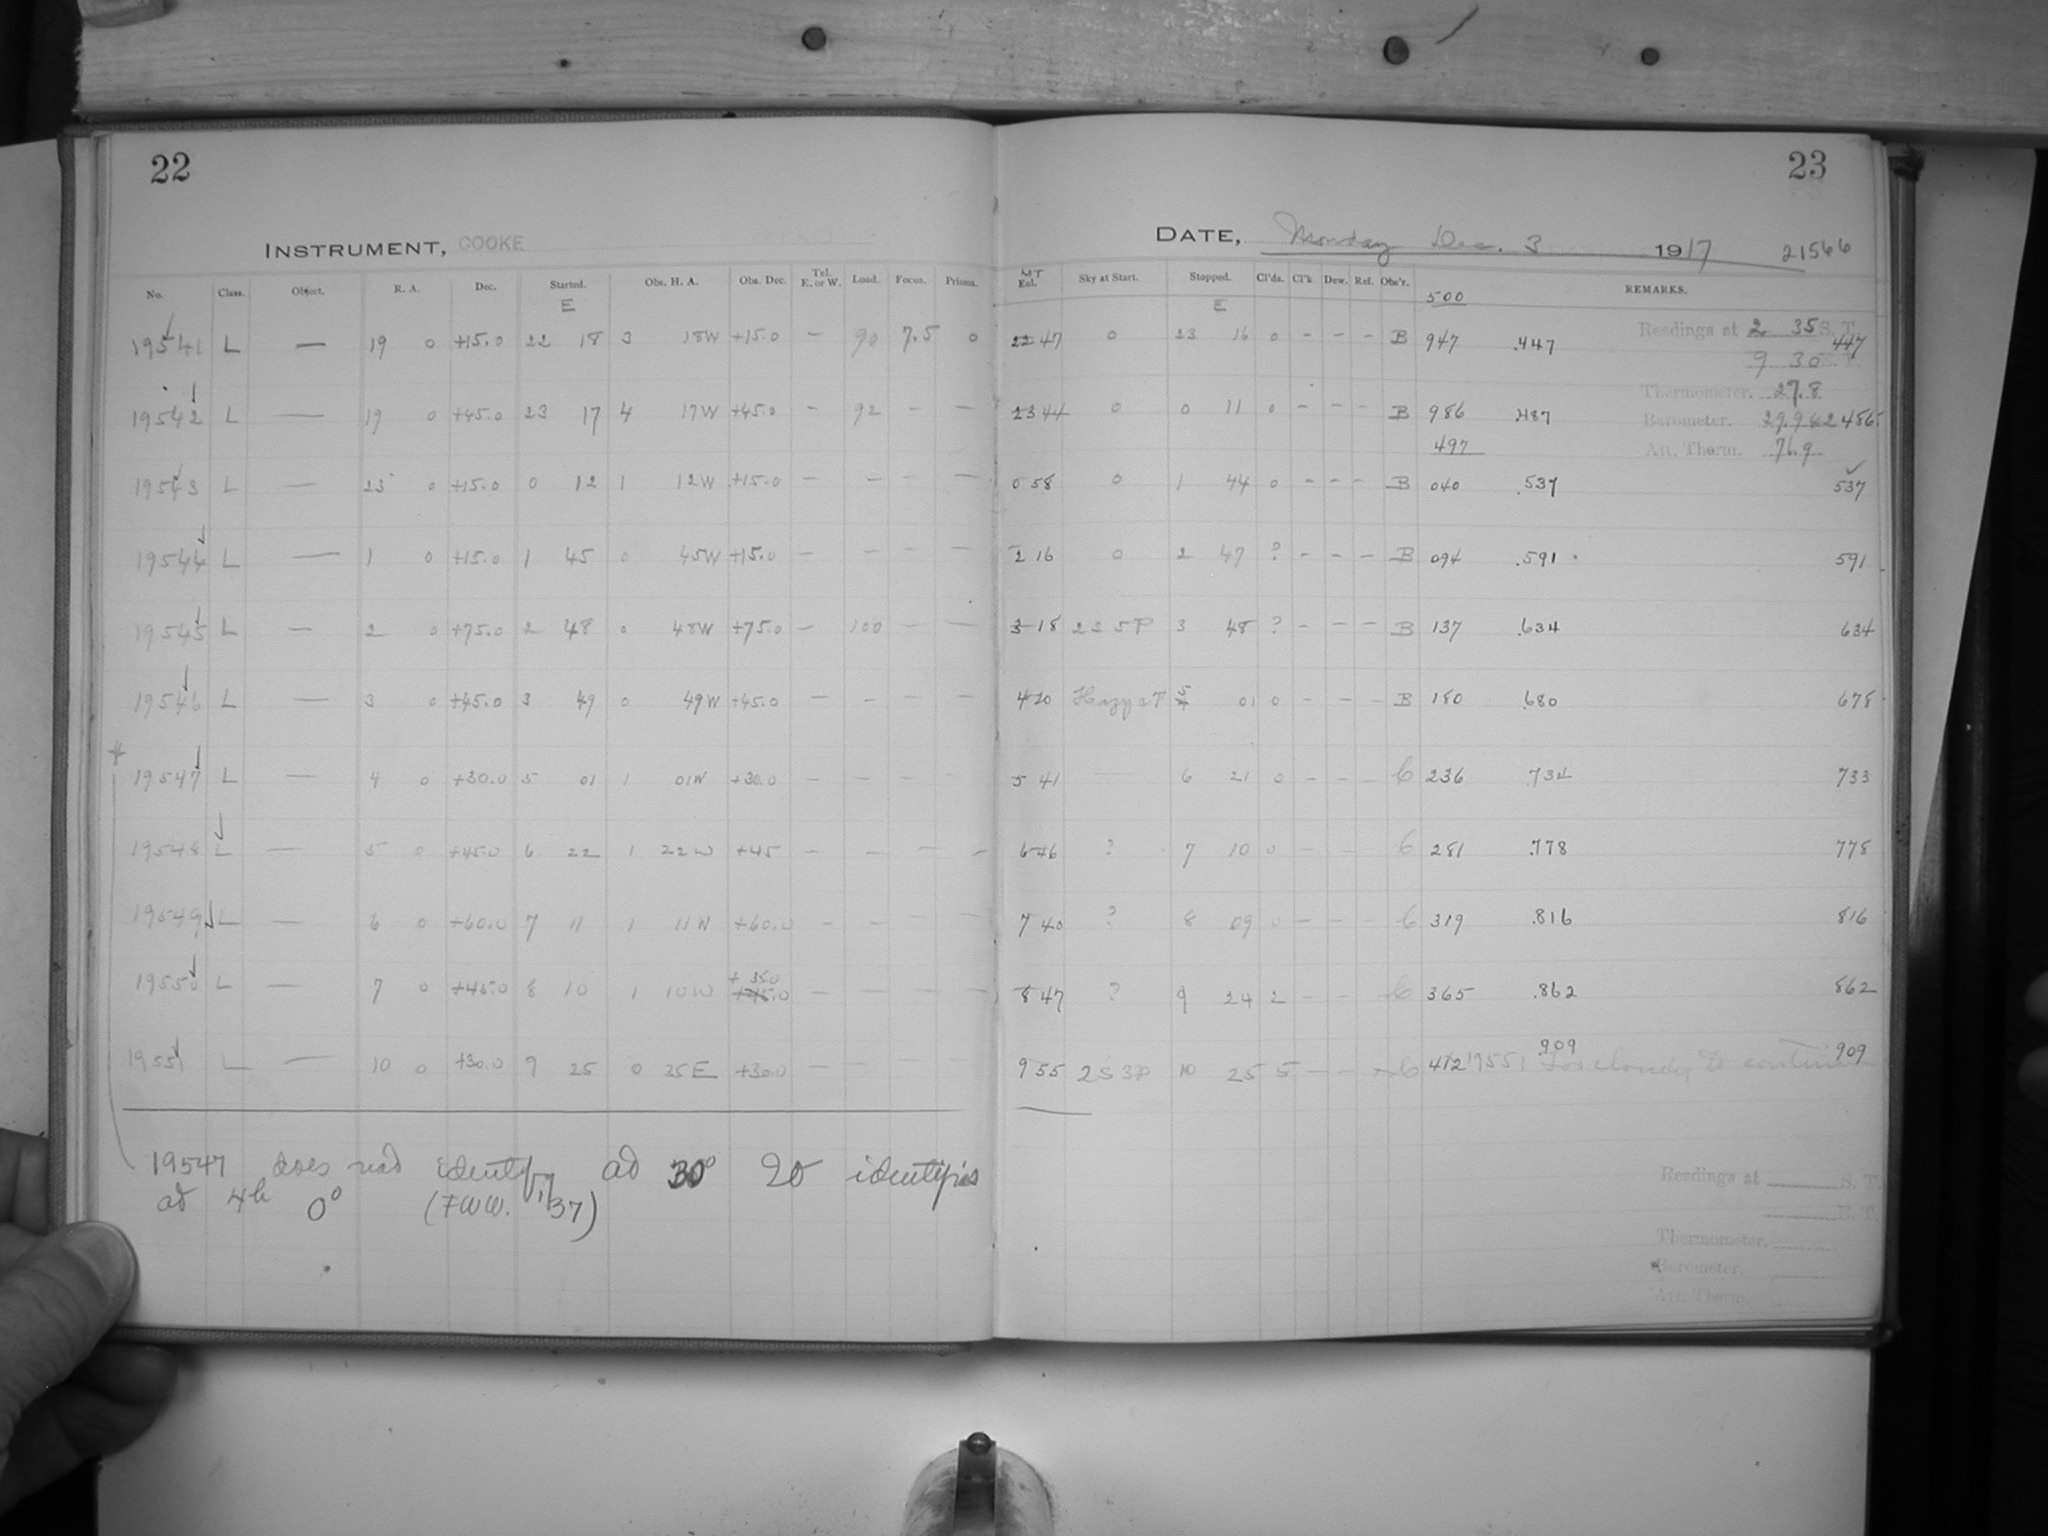 22
INSTRUMENT, COOKE
No. Class. Object. R. A. Dec. Started. Obs. H. A. Obs. Dec. Tel. E. or W. Load. Focus. Prisms.
E
19541 L — 19 0 +15.0 22 18 3 18W +15.0 — 90 7.5 0
19542 L — 19 0 +45.0 23 17 4 17W +45.0 — 92 — —
19543 L — 23 0 +15.0 0 12 1 12W +15.0 — — — —
19544 L — 1 0 +15.0 1 45 0 45W +15.0 — — — —
19545 L — 2 0 +75.0 2 48 0 48W +75.0 — 100 — —
19546 L — 3 0 +45.0 3 49 0 49W +45.0 — — — —
19547 L — 4 0 +30.0 5 01 1 01W +30.0 — — — —
19548 L — 5 0 +45.0 6 22 1 22W +45 — — — —
19549 L — 6 0 +60.0 7 11 1 11W +60.0 — — —
+ 35.0
19550 L — 7 0 +45.0 8 10 1 10W +45.0 — — — —
19551 L — 10 0 +30.0 9 25 0 35E +30.0 — —
19547 does not identify at 30° It identifies
at 4h 0° (FWW. /37)
23
DATE, Monday Dec. 3 1917 21566
MT
Eal. Sky at Start. Stopped. Cl'ds. Cl'k Dew. Ref. Obs'r. REMARKS.
E 500
22 47 0 23 16 0 — — — B 947 .447 447
Readings at 2 35 S. T.
9 30 E. T.
Thermometer. 27.8
23 44 0 0 11 0 — — — B 986 .487 486
Barometer. 29.942
497
Att. Therm. 76.9
0 58 0 1 44 0 — — — B 040 .537 537
2 16 0 2 47 ? — — — B 094 .591 591
3 18 2S 5P 3 48 ? — — — B 137 .634 634
4 20 Hazy at P 5 01 0 — — — B 180 .680 678
5 41 — 6 21 0 — — — C 236 .734 733
6 46 ? 7 10 0 — — C 281 .778 778
7 40 ? 8 09 0 — — — C 319 .816 816
8 47 ? 9 24 2 — — C 365 .862 862
9 55 2S 3P 10 25 5 — — — C 412 .909 909
19551 Too cloudy to continue
Readings at S. T.
E. T.
Thermometer.
Barometer.
Att. Therm.